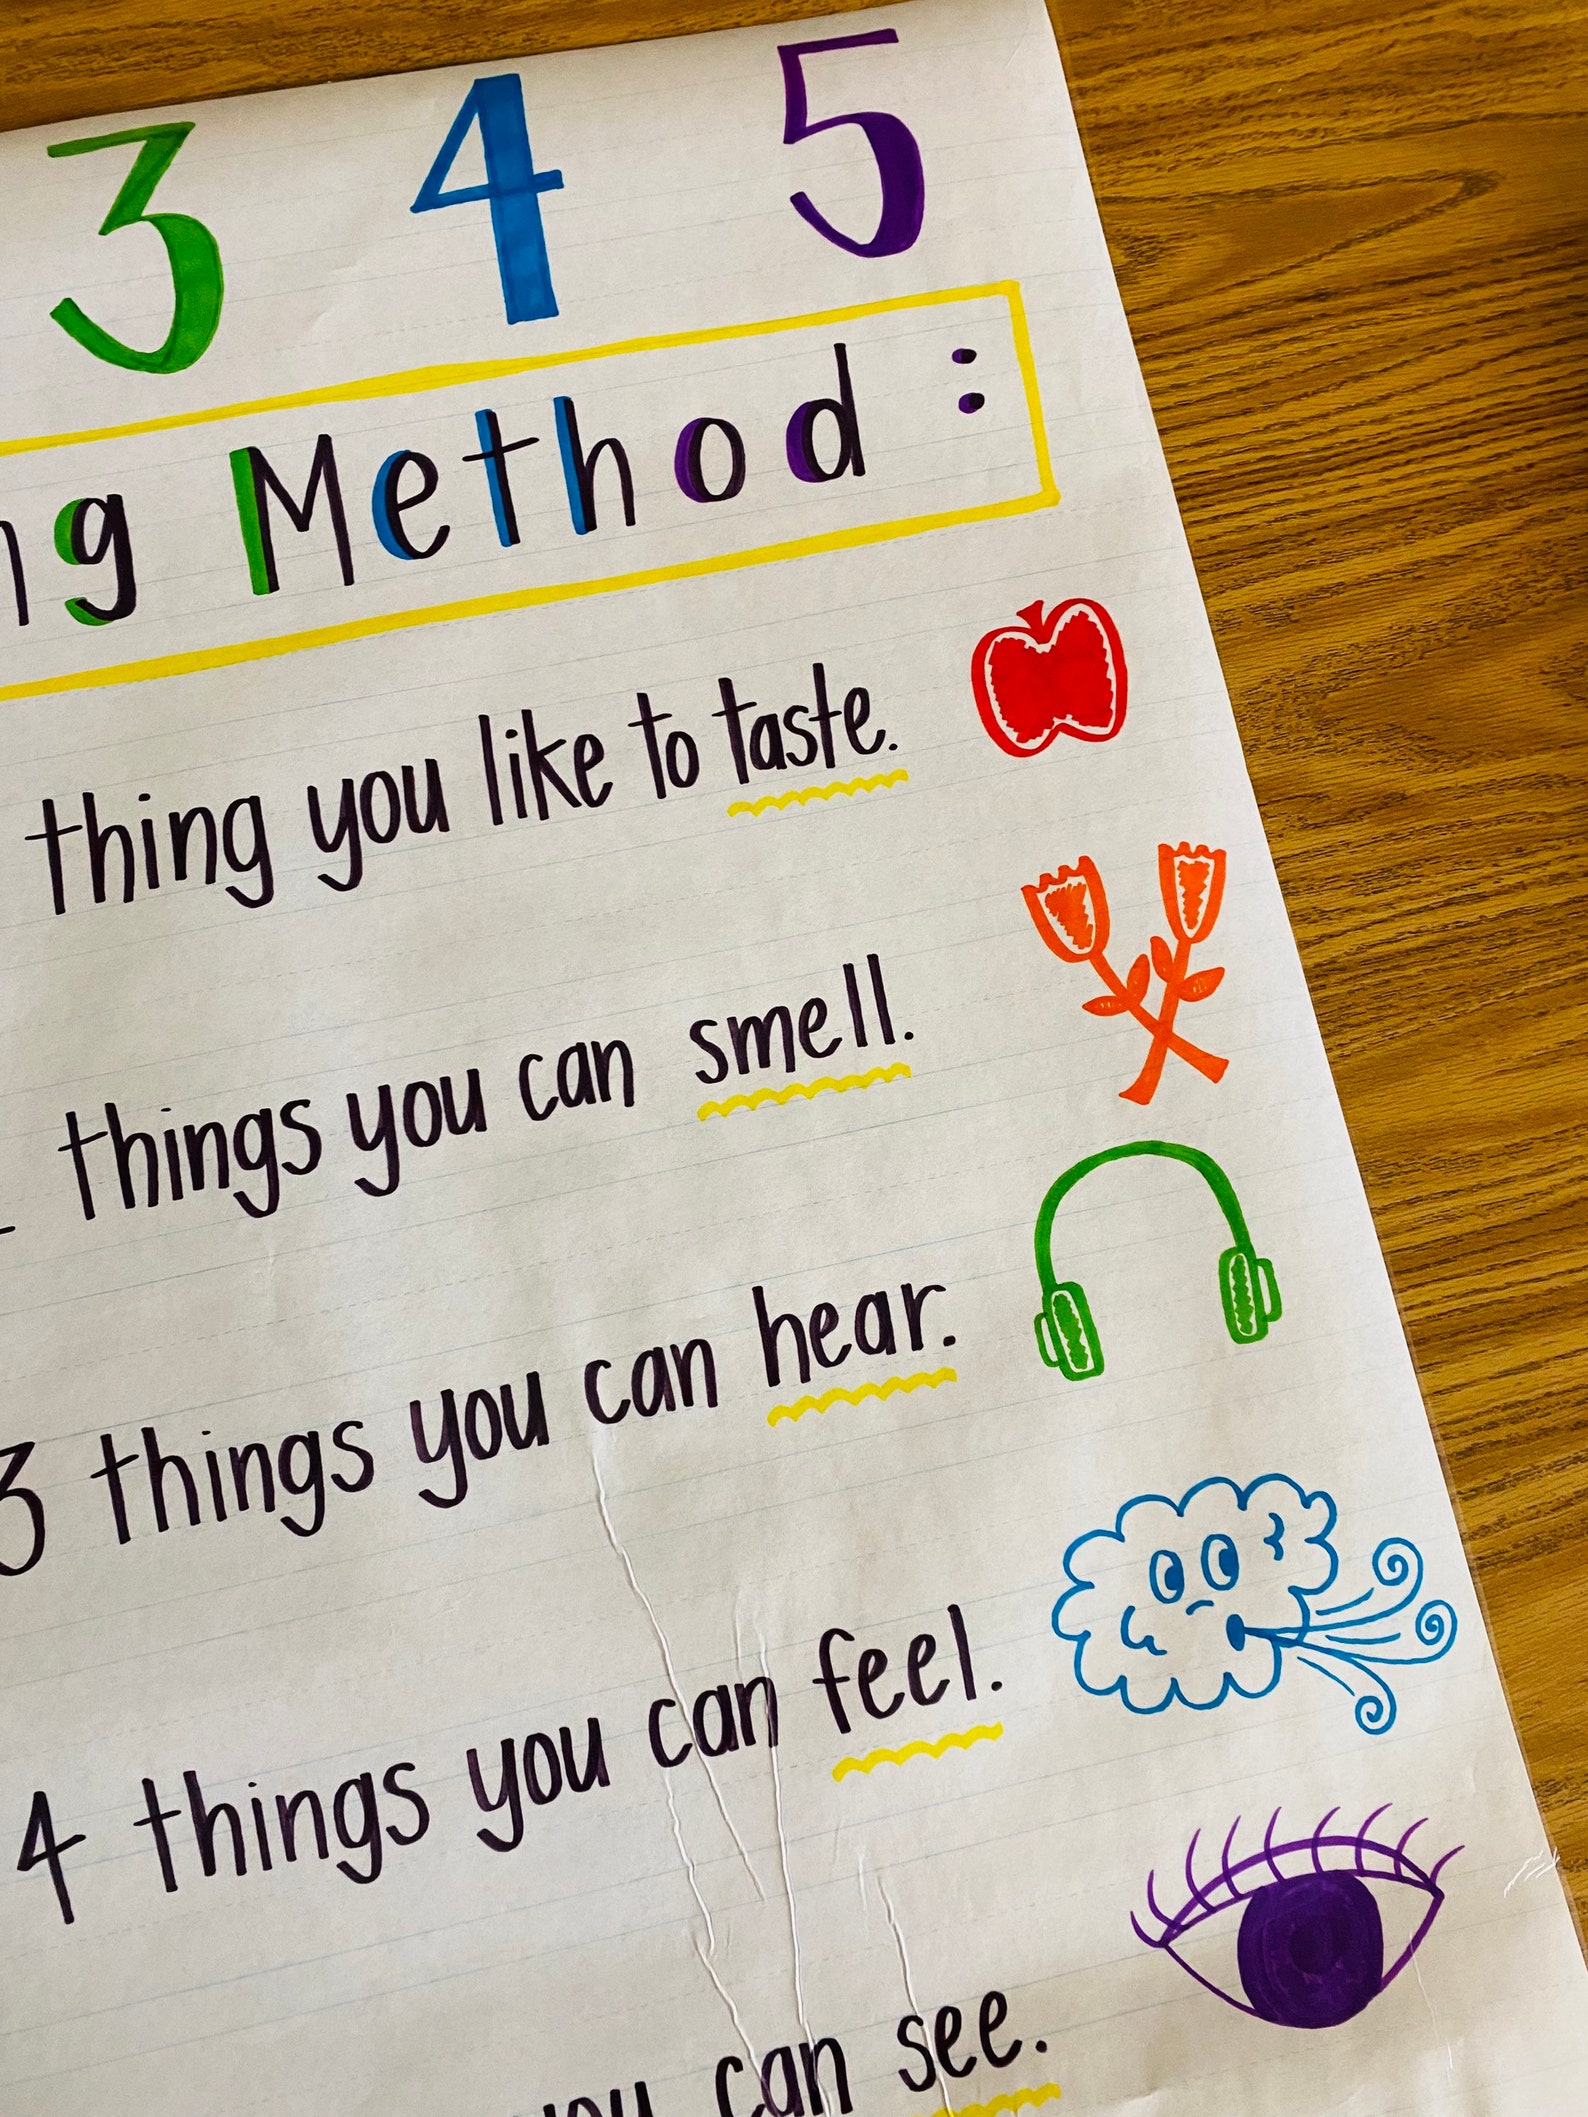 3 4 5
Method :
thing you like to taste.
things you can smell.
3 things you can hear.
4 things you can feel.
can see.